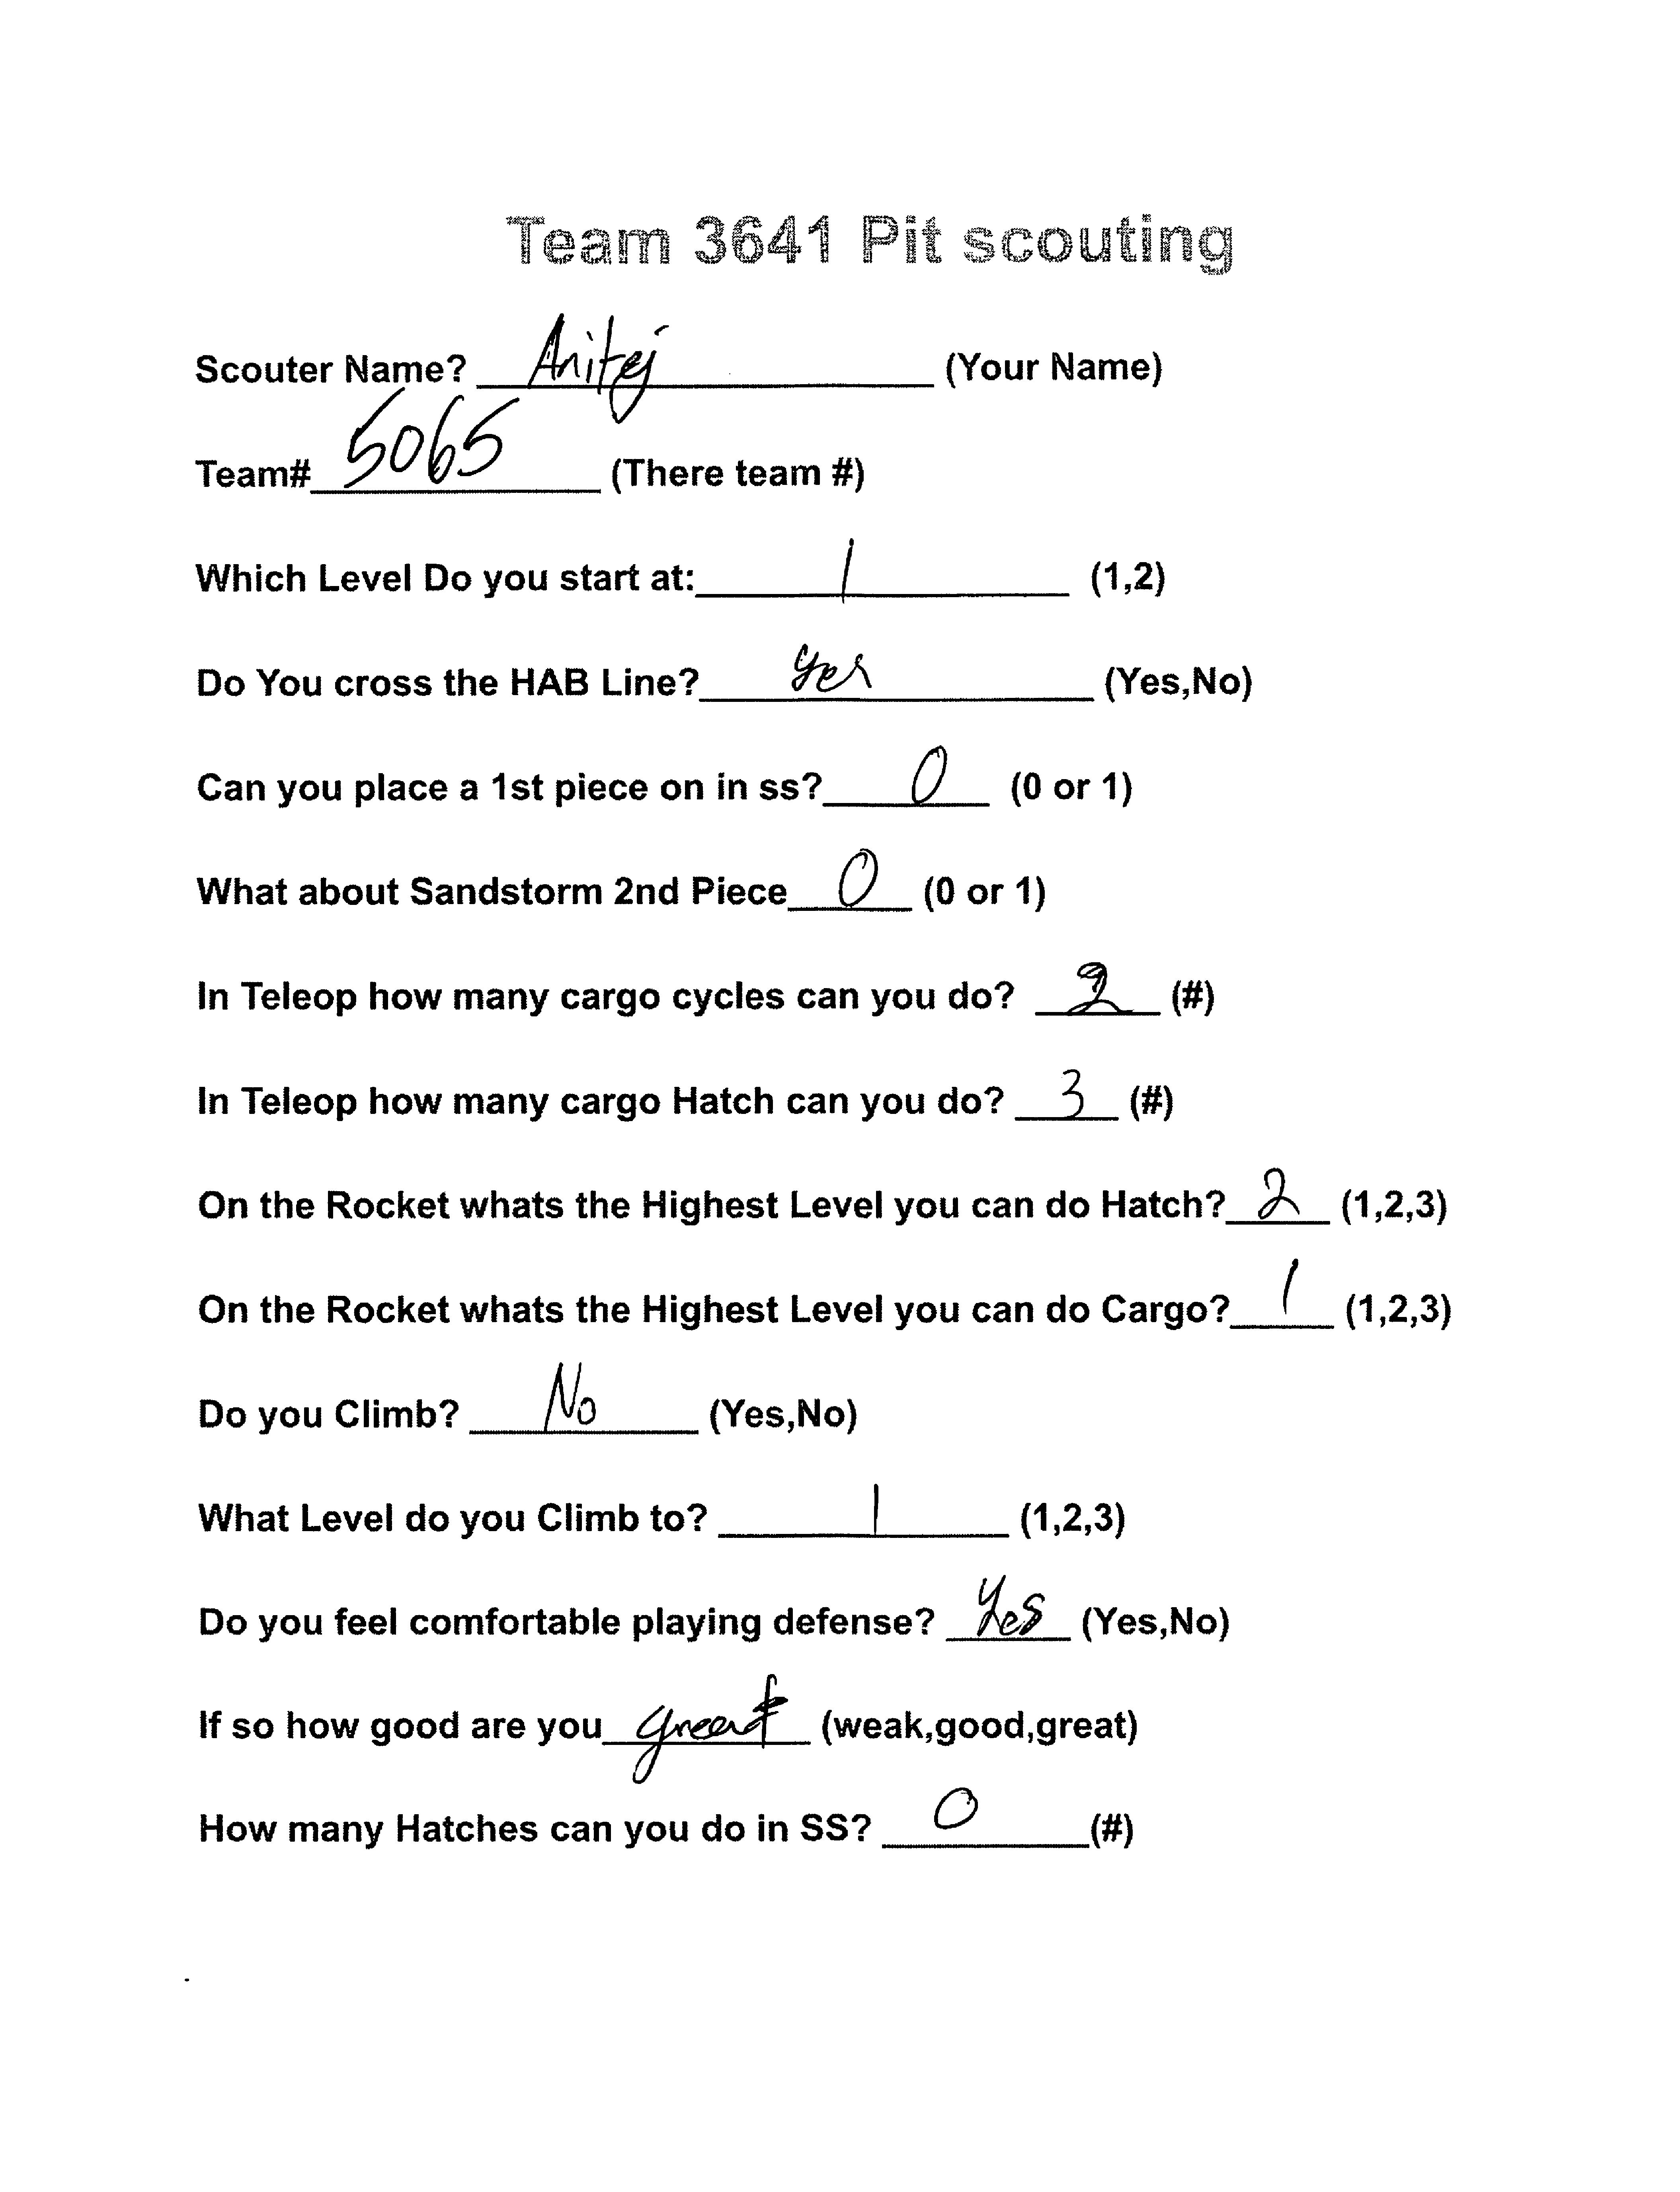 Team 3641 Pit scouting
Scouter Name? Anitej (Your Name)
Team# 5065 (There team #)
Which Level Do you start at: 1 (1,2)
Do You cross the HAB Line? yes (Yes,No)
Can you place a 1st piece on in ss? 0 (0 or 1)
What about Sandstorm 2nd Piece 0 (0 or 1)
In Teleop how many cargo cycles can you do? 2 (#)
In Teleop how many cargo Hatch can you do? 3 (#)
On the Rocket whats the Highest Level you can do Hatch? 2 (1,2,3)
On the Rocket whats the Highest Level you can do Cargo? 1 (1,2,3)
Do you Climb? No (Yes,No)
What Level do you Climb to? 1 (1,2,3)
Do you feel comfortable playing defense? Yes (Yes,No)
If so how good are you great (weak,good,great)
How many Hatches can you do in SS? 0 (#)